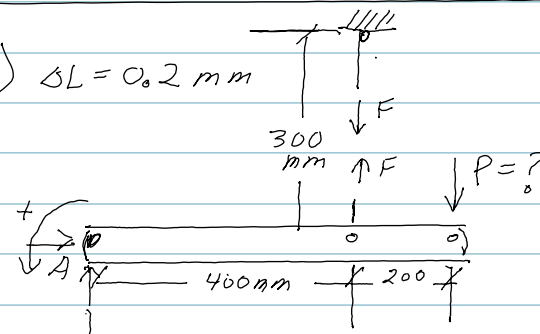 ) ΔL = 0.2 mm
F
300
mm
F
P = ?
+
A
400mm
200